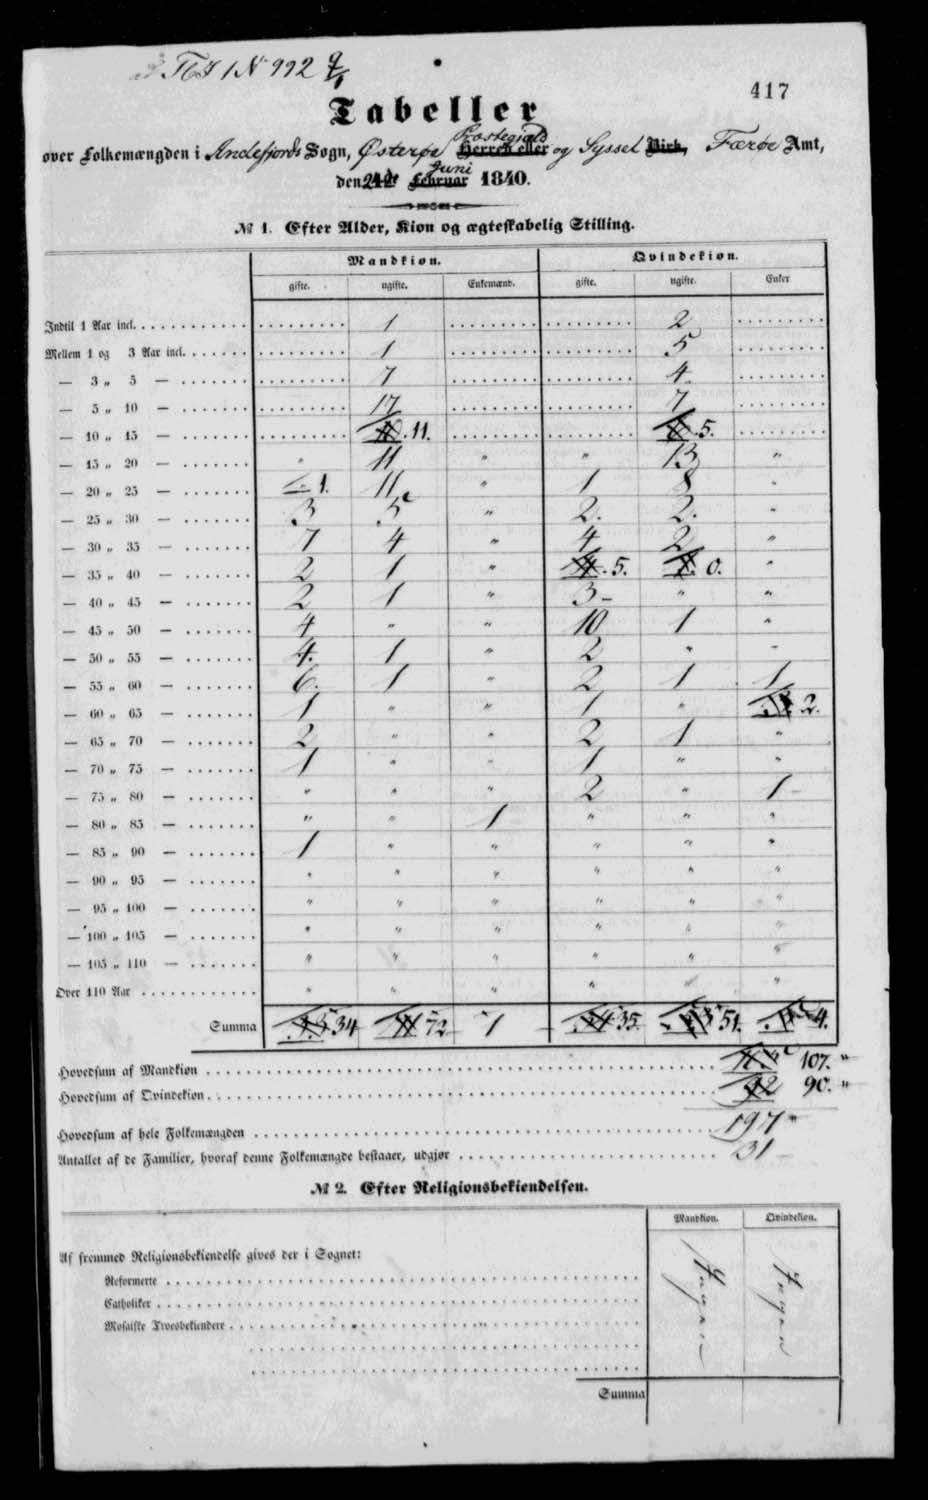 TCJ 1 N 992 9/1
417
Tabeller
over Folkemængden i Andefjords Sogn, Østerøe Præstegield Herred eller og Syssel Birk, Færøe Amt,
den 24de Februar Juni 1840.
№ 1. Efter Alder, Kion og ægteskabelig Stilling.
Mandkiøn. Qvindekiøn.
gifte. ugifte. Enkemænd. gifte. ugifte. Enker
Indtil 1 Aar incl. 1 2
Mellem 1 og 3 Aar incl. 1 5
— 3 „ 5 — 7 4
— 5 „ 10 — 17 7
— 10 „ 15 — 11. 5.
— 15 „ 20 — " 11 " " 13 "
— 20 „ 25 — 1. 11 " 1 8 "
— 25 „ 30 — 3 5 " 2. 2. "
— 30 „ 35 — 7 4 " 4 2 "
— 35 „ 40 — 2 1 " 5. 0. "
— 40 „ 45 — 2 1 " 3 " "
— 45 „ 50 — 4 " " 10 1 "
— 50 „ 55 — 4. 1 " 2 " "
— 55 „ 60 — 6. 1 " 2 1 1
— 60 „ 65 — 1 " " 1 " 2.
— 65 „ 70 — 2 " " 2 1 "
— 70 „ 75 — 1 " " 1 " "
— 75 „ 80 — " " " 2 " 1
— 80 „ 85 — " " 1 " " "
— 85 „ 90 — 1 " " " " "
— 90 „ 95 — " " " " " "
— 95 „ 100 — " " " " " "
— 100 „ 105 — " " " " " "
— 105 „ 110 — " " " " " "
Over 110 Aar " " " " " "
Summa 34 72 1 35. 51. 4.
Hovedsum af Mandkiøn 107. "
Hovedsum af Qvindekiøn 92 90. "
Hovedsum af hele Folkemængden 197 "
Antallet af de Familier, hvoraf denne Folkemængde bestaaer, udgjør 31
№ 2. Efter Religionsbekiendelsen.
Mandkiøn. Qvindekiøn.
Af fremmed Religionsbekiendelse gives der i Sognet:
Reformerte
Catholiker
Mosaiske Troesbekiendere
Ingen Ingen
Summa